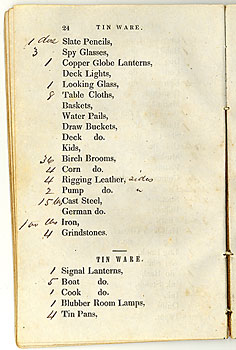 24 TIN WARE.
1 doz Slate Pencils,
3 Spy Glasses,
1 Copper Globe Lanterns,
Deck Lights,
1 Looking Glass,
8 Table Cloths,
Baskets,
Water Pails,
Draw Buckets,
Deck do.
Kids,
36 Birch Brooms,
4 Corn do.
4 Rigging Leather, sides
2 Pump do.
15 lb Cast Steel,
German do.
Iron,
4 Grindstones.
TIN WARE.
1 Signal Lanterns,
5 Boat do.
1 Cook do.
1 Blubber Room Lamps,
4 Tin Pans,